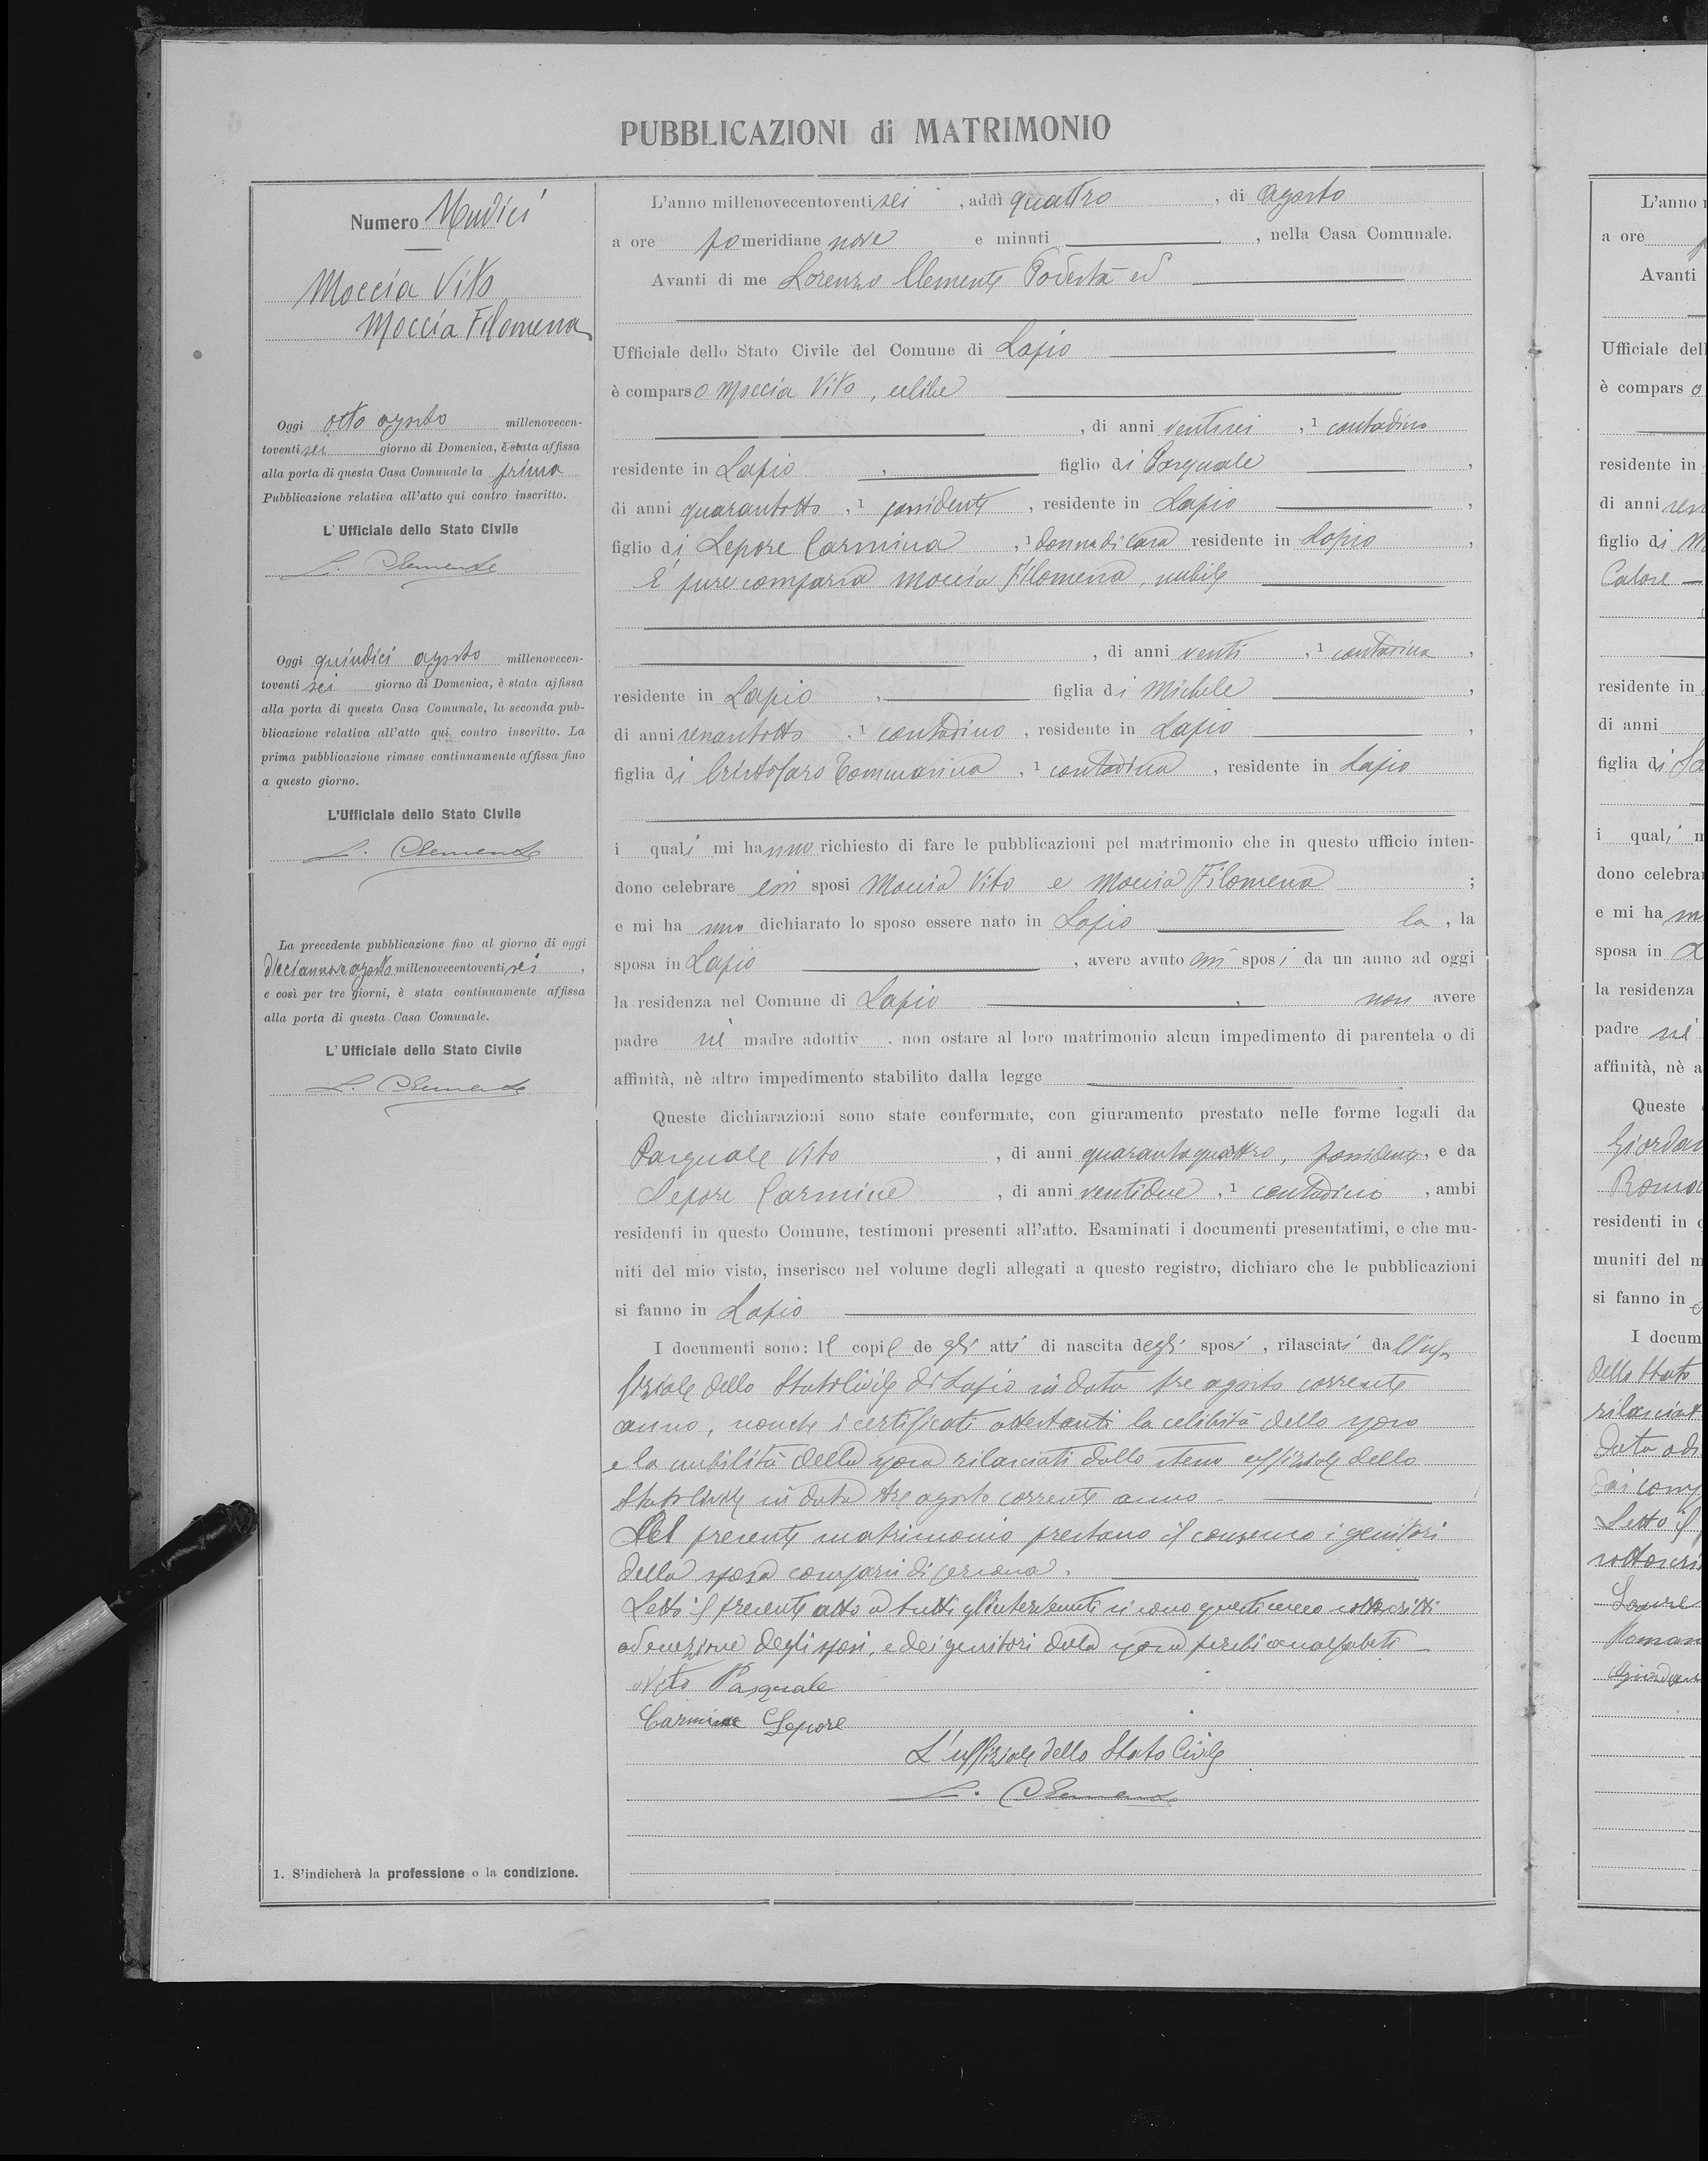 PUBBLICAZIONI di MATRIMONIO
Numero Undici
Moccia Vito
Moccia Filomena
Oggi otto agosto millenovecen-
toventi sei giorno di Domenica, è stata affissa
alla porta di questa Casa Comunale la prima
Pubblicazione relativa all'atto qui contro inscritto.
L'Ufficiale dello Stato Civile
L. Clemente
Oggi quindici agosto millenovecen-
toventi sei giorno di Domenica, è stata affissa
alla porta di questa Casa Comunale, la seconda pub-
blicazione relativa all'atto qui contro inscritto. La
prima pubblicazione rimase continuamente affissa fino
a questo giorno.
L'Ufficiale dello Stato Civile
L. Clemente
La precedente pubblicazione fino al giorno di oggi
diciannove agosto millenovecentoventi sei,
e così per tre giorni, è stata continuamente affissa
alla porta di questa Casa Comunale.
L'Ufficiale dello Stato Civile
L. Clemente
1. S'indicherà la professione o la condizione.
L'anno millenovecentoventi sei, addì quattro, di Agosto
a ore pomeridiane nove e minuti, nella Casa Comunale.
Avanti di me Lorenzo Clemente Podestà ed
Ufficiale dello Stato Civile del Comune di Lapio
è comparso Moccia Vito, celibe
, di anni ventisei, 1 contadino
residente in Lapio, figlio di Pasquale,
di anni quarantotto, 1 possidente, residente in Lapio,
figlio di Lepore Carmina, 1 donna di casa residente in Lapio,
È pure comparsa Moccia Filomena, nubile
, di anni venti, 1 contadina,
residente in Lapio, figlia di Michele,
di anni sessantotto, 1 contadino, residente in Lapio,
figlia di Cristofaro Tommasina, 1 contadina, residente in Lapio
i quali mi hanno richiesto di fare le pubblicazioni pel matrimonio che in questo ufficio inten-
dono celebrare essi sposi Moccia Vito e Moccia Filomena;
e mi ha nno dichiarato lo sposo essere nato in Lapio la, la
sposa in Lapio, avere avuto essi sposi da un anno ad oggi
la residenza nel Comune di Lapio, non avere
padre nè madre adottiv. non ostare al loro matrimonio alcun impedimento di parentela o di
affinità, nè altro impedimento stabilito dalla legge
Queste dichiarazioni sono state confermate, con giuramento prestato nelle forme legali da
Pasquale Vito, di anni quarantaquattro, possidente, e da
Lepore Carmine, di anni ventidue, 1 contadino, ambi
residenti in questo Comune, testimoni presenti all'atto. Esaminati i documenti presentatimi, e che mu-
niti del mio visto, inserisco nel volume degli allegati a questo registro, dichiaro che le pubblicazioni
si fanno in Lapio
I documenti sono: le copie de gli atti di nascita degli sposi, rilasciati dall'uf-
fiziale dello Stato Civile di Lapio in data tre agosto corrente
anno, nonchè i certificati attestanti la celibità dello sposo
e la nubilità della sposa rilasciati dallo stesso uffiziale dello
Stato Civile in data tre agosto corrente anno.
Al presente matrimonio prestano il consenso i genitori
della sposa comparsi di persona.
Letto il presente atto a tutti gl'intervenuti si sono questi meco sottoscritti
ad eccezione degli sposi, e dei genitori della sposa perchè analfabeti
Vito Pasquale
Carmine Lepore
L'uffiziale dello Stato Civile
L. Clemente
L'anno
a ore
Avanti
Ufficiale dell
è compars o
residente in
di anni
figlio di
Calore
residente in
di anni
figlia di
i quali
dono celebra
e mi ha
sposa in
la residenza
padre nè
affinità, nè a
Queste
residenti in
muniti del m
si fanno in
I docum
dello Stato
Letto il